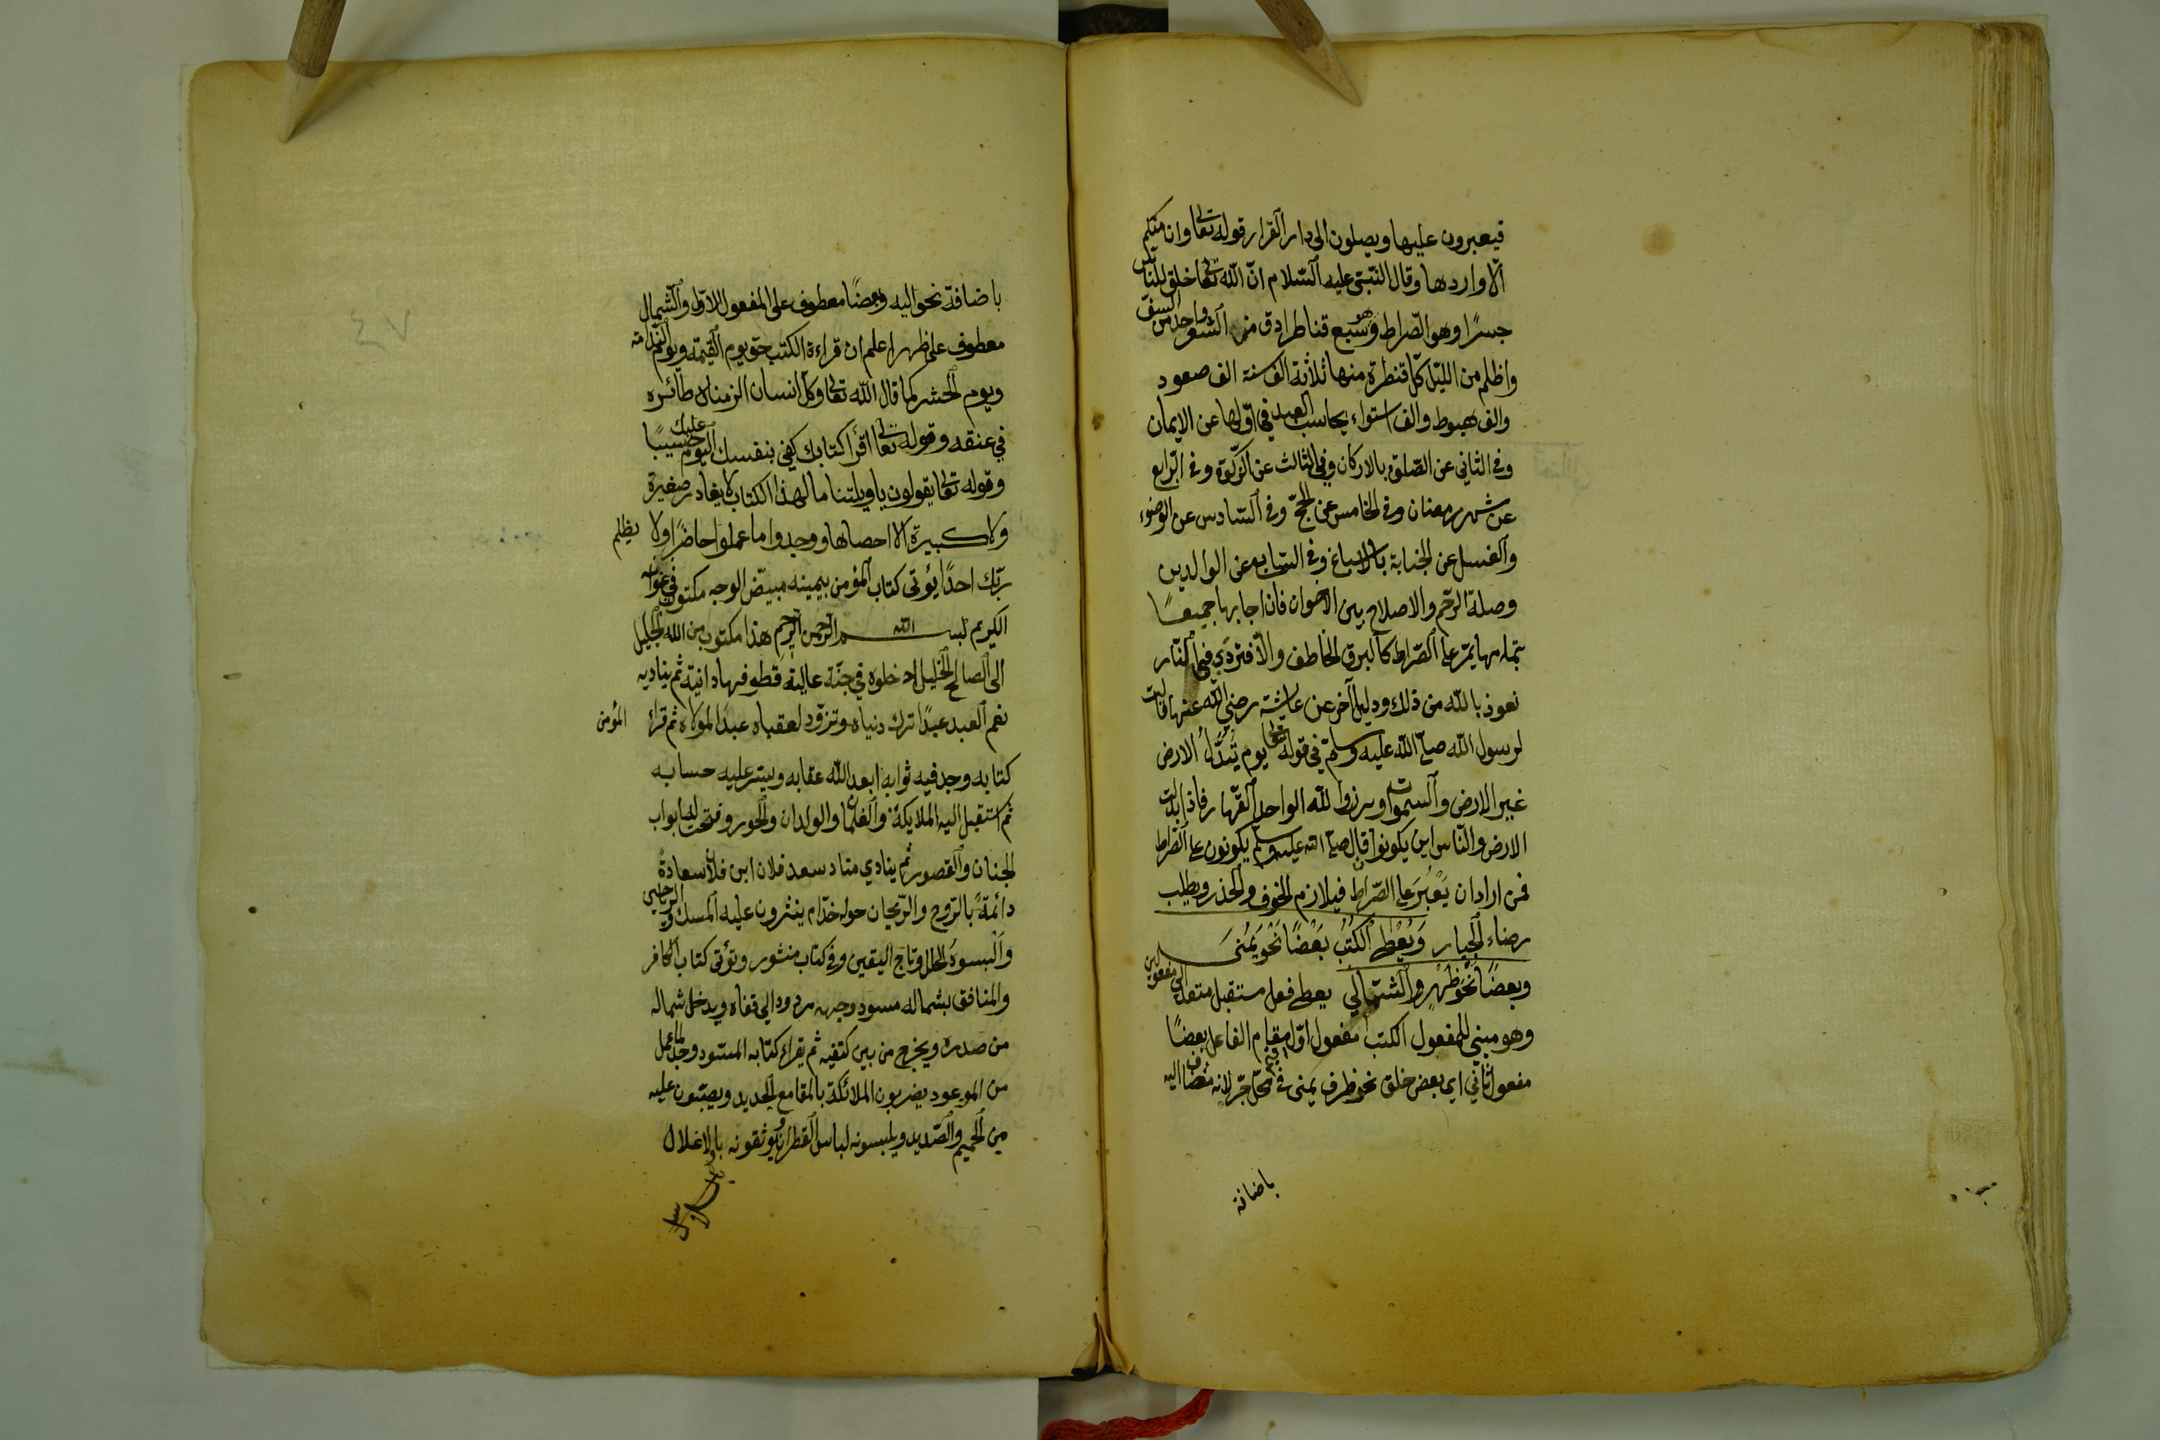 فيعبرون عليها ويصلون الى دار القرار قوله تعالى وان منكم
الا واردها وقال النبي عليه السلام انّ الله تعالى خلق للناس
جسرًا وهو الصراط وهو سبع قناطر ادق من الشعر واحد من السيف
واظلم من الليل كل قنطرة منها ثلاثة الف سنة الف صعود
والف هبوط والف استواء يحاسب العبد في اوّلها عن الايمان
وفي الثاني عن الصلوة بالاركان وفي الثالث عن الزكوة وفي الرابع
عن شهر رمضان وفي الخامس عن الحج وفي السادس عن الوضوء
والغسل عن الجنابة بالاسباغ وفي السابع عن الوالدين
وصلة الرحم والاصلاح بين الاخوان فان اجابها جميعًا
بتمامها يمرّ على الصراط كالبرق الخاطف والّا فتردّى في النار
نعوذ بالله من ذلك ودليل آخر عن عايشة رضي الله عنها قالت
لرسول الله صلى الله عليه وسلم في قوله تعالى يوم تُبَدَّلُ الارض
غير الارض والسموات وبرزوا لله الواحد القهار فاذا بدلت
الارض والناس اين يكونوا قال صلى الله عليه وسلم يكونون على الصراط
فمن اراد ان يَعْبُرَ على الصراط فيلازم الخوف والحذر ويطلب
رضاء الجبار وَيُعْطَى الكُتُبُ بَعْضًا نَحْوَ يُمْنَى
وبعضًا نَحْوَ ظَهْرٍ والشمالي يعطى فعل مستقبل متعدّ الى مفعولين
وهو مبني للمفعول الكتب مفعول اوّل اقيم مقام الفاعل بعضًا
مفعول ثاني اي بعض خلق نحو ظرف يمنى في محل جرّ لانه مضاف اليه
باضافة
باضافة نحو اليه وبعضًا معطوف على المفعول الاوّل والشمال
معطوف على ظهر اعلم ان قراءة الكتب حق يوم القيمة ويوم الندامة
ويوم الحشر كما قال الله تعالى وكل انسان الزمناه طائره
في عنقه وقوله تعالى اقرأ كتابك كفى بنفسك اليوم عليك حسيبًا
وقوله تعالى يقولون يا ويلتنا ما لهذا الكتاب لا يغادر صغيرة
ولا كبيرة الا احصاها ووجدوا ما عملوا حاضرًا ولا يظلم
ربّك احدًا يؤتى كتاب المؤمن بيمينه مبيّض الوجه مكتوب في عنوانه
الكريم بسم الله الرحمن الرحيم هذا مكتوب من الله الجليل
الى الصالح الخليل ادخلوه في جنة عالية قطوفها دانية ثم يناديه
نعم العبد عبدًا ترك دنياه وتزوّد لعقباه عبدًا لمولاه ثم قراء المؤمن
كتابه وجد فيه ثوابه ابعد الله عقابه ويسّر عليه حسابه
ثم استقبل اليه الملايكة والغلمان والولدان والحور وفتحت لها ابواب
الجنان والقصور ثم ينادي مناد سعد فلان ابن فلان سعادة
دائمة بالروح والريحان حوله خدّام ينثرون عليه المسك
والبسوه الحلل وتاج اليقين وفي كتاب منثور ويؤتى كتاب الكافر
والمنافق بشماله مسود وجهه مردود الى قفاه ويدخل شماله
من صدره ويخرج من بين كتفيه ثم يقراء كتابه المسود وجد
من الموعود يضربون الملائكة بالمقامع الحديد ويصبّون عليه
من الحميم والصديد ويلبسونه لباس القطران ويوثقونه بالاغلال